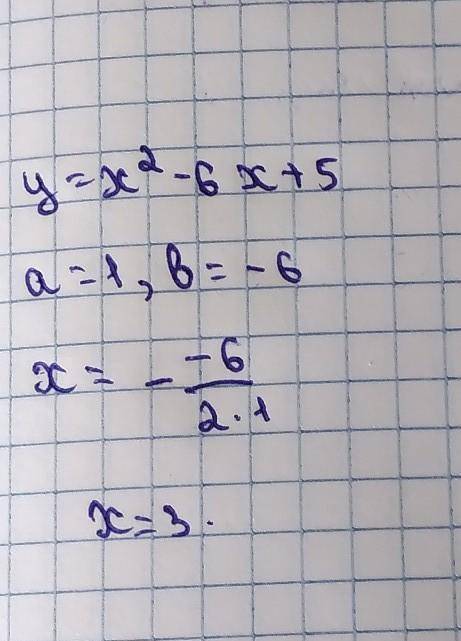 y = x² - 6x + 5
a = 1, b = -6
x = - -6/2·1
x = 3.